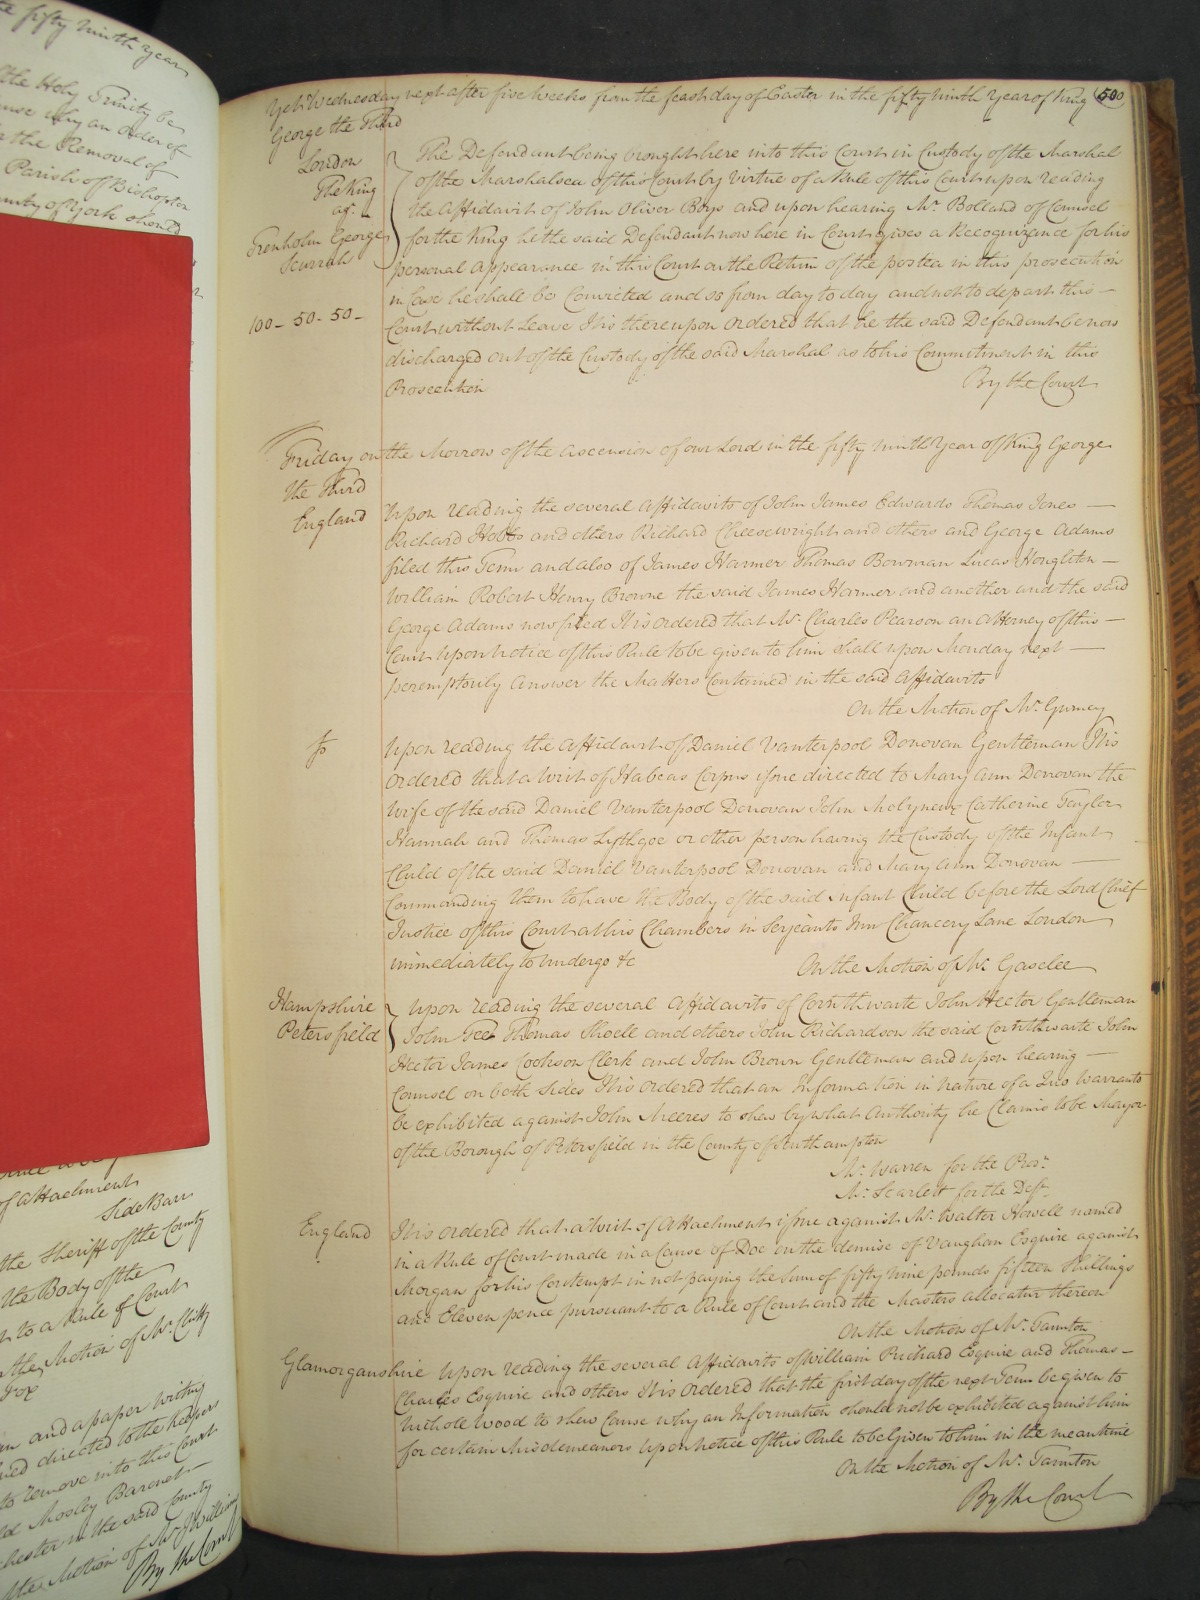 the fifty ninth year
the Holy Trinity be
cause why an order of
for the Removal of
Parish of Bishopton
County of York should
Yet Wednesday next after five weeks from the feast day of Easter in the fifty ninth Year of King
500
George the Third
London
The King
agt.
Trenholm George
Scurrah
100 - 50 - 50 -
The Defendant being brought here into this Court in Custody of the Marshal
of the Marshalsea of this Court by virtue of a Rule of this Court upon reading
the Affidavit of John Oliver Boys and upon hearing Mr. Bolland of Counsel
for the King he the said Defendant now here in Court gives a Recognizance for his
personal appearance in this Court on the Return of the postea in this prosecution
in Case he shall be Convicted and so from day to day and not to depart this -
Court without Leave It is thereupon Ordered that he the said Defendant be now
discharged out of the Custody of the said Marshal as to his Commitment in this
Prosecution
By the Court
Friday on the Morrow of the Ascension of our Lord in the fifty ninth Year of King George
the Third
England
Upon reading the several Affidavits of John James Edwards Thomas Jones -
Richard Hobbs and others Richard Cheesewright and others and George Adams
filed this Term and also of James Harmer Thomas Bowman Lucas Houghton -
William Robert Henry Browne the said James Harmer and another and the said
George Adams now filed It is ordered that Mr. Charles Pearson an Attorney of this -
Court upon notice of this Rule to be given to him shall upon Monday next -
peremptorily answer the Matters Contained in the said Affidavits
On the Motion of Mr. Gurney
Upon reading the Affidavit of Daniel Vanterpool Donovan Gentleman It is
Ordered that a Writ of Habeas Corpus issue directed to Mary Ann Donovan the
Wife of the said Daniel Vanterpool Donovan John Molyneux Catherine Taylor
Hannah and Thomas Lythgoe or other person having the Custody of the Infant
Child of the said Daniel Vanterpool Donovan and Mary Ann Donovan -
Commanding them to have the Body of the said infant Child before the Lord Chief
Justice of this Court at his Chambers in Serjeants Inn Chancery Lane London
immediately to undergo &c
On the Motion of Mr. Gaselee
Hampshire
Petersfield
Upon reading the several Affidavits of Cornthwaite John Hector Gentleman
John Gee Thomas Shoell and others John Richardson the said Cornthwaite John
Hector James Cookson Clerk and John Brown Gentleman and upon hearing -
Counsel on both sides It is ordered that an Information in nature of a Quo Warranto
be exhibited against John Meeres to shew by what Authority he Claims to be Mayor
of the Borough of Petersfield in the County of Southampton
Mr. Warren for the Prosr.
Mr. Scarlett for the Deft.
England
It is ordered that a Writ of Attachment issue against Mr. Walter Howell named
in a Rule of Court made in a Cause of Doe on the demise of Vaughan Esquire against
Morgan for his Contempt in not paying the Sum of fifty nine pounds fifteen Shillings
and Eleven pence pursuant to a Rule of Court and the Masters allocatur thereon
On the Motion of Mr. Taunton
Glamorganshire Upon reading the several Affidavits of William Prichard Esquire and Thomas -
Charles Esquire and others It is Ordered that the first day of the next Term be given to
Nicholl Wood to shew Cause why an Information should not be exhibited against him
for certain Misdemeanors Upon notice of this Rule to be Given to him in the meantime
On the Motion of Mr. Taunton
By the Court
of Attachment
Side Barr
the Sheriff of the County
the Body of the
to a Rule of Court
the Motion of Mr. Chitty
Fox
and a paper writing
directed to the keepers
to remove into this Court
Mosley Baronet -
in the said County
the Motion of Mr. Williams
By the Court